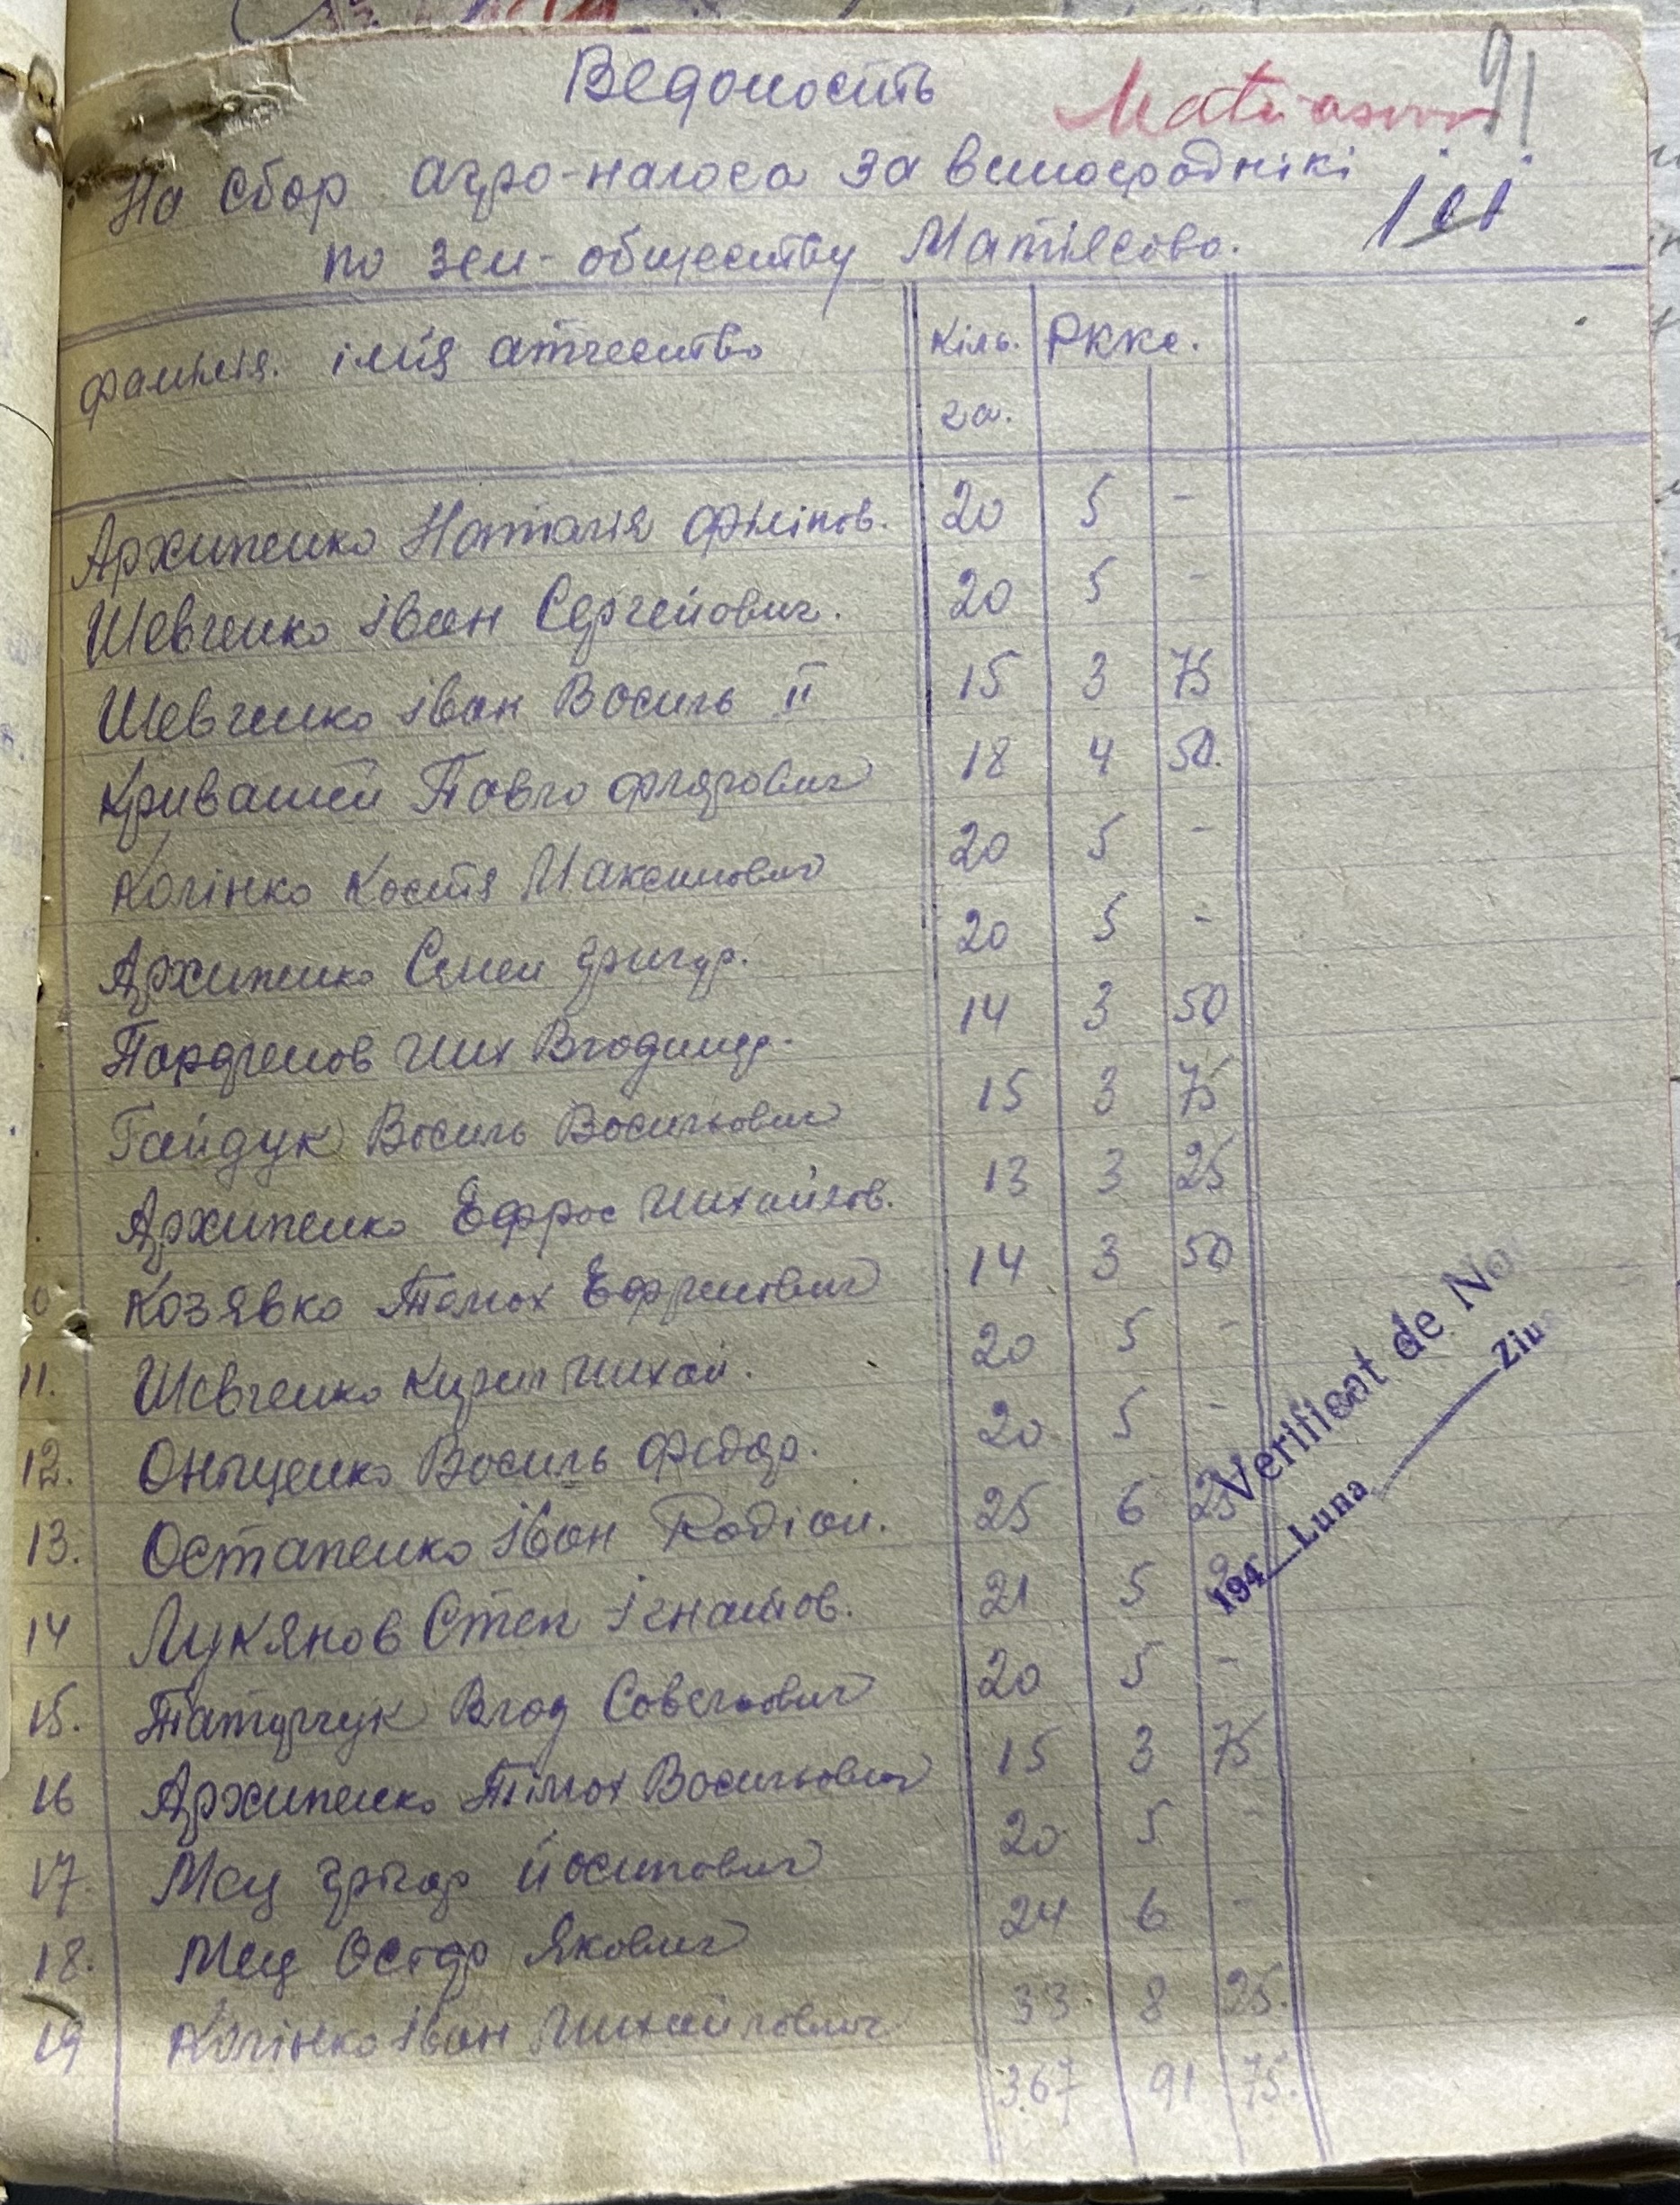 Ведомость
91
На сбор агро-налога за виноградникі
101
по зем-обществу Матіясово.
фамілія. імія атчество Кіль. га. РККс.
Архипенко Наталія Філіпов. 20 5 -
Шевченко Іван Сергейович. 20 5 -
Шевченко Іван Василь II 15 3 75
Кривашей Павло Флярович 18 4 50.
Колінко Костя Максимович 20 5 -
Архипенко Семен Григор. 20 5 -
Парфенов Мих Владимир. 14 3 50
Гайдук Василь Васильович 15 3 75
Архипенко Ефрос Михайлов. 13 3 25
0 Козявко Тимох Ефремович 14 3 50
11. Шевченко Кирил Михай. 20 5 -
12. Онищенко Василь Федор. 20 5 -
13. Остапенко Іван Rодіон. 25 6 25
14 Лукянов Степ Ігнатов. 21 5
15. Татарчук Влад Савельович 20 5 -
16 Архипенко Тімох Васильович 15 3 75
17. Мец Грігор Йосипович 20 5 -
18. Мец Остап Якович 24 6 -
19 Колінко Іван Михайлович 33. 8 25.
367 91 75.
Verificat de
194 Luna Ziua